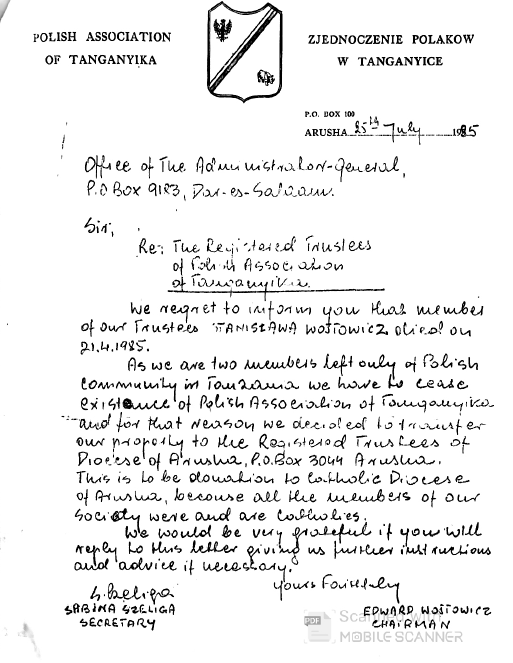 POLISH ASSOCIATION
OF TANGANYIKA
ZJEDNOCZENIE POLAKOW
W TANGANYICE
P.O. BOX 100
ARUSHA 25th July 1985
Office of The Administrator-General,
P.O Box 9183, Dar-es-Salaam.
Sir,
Re: The Registered Trustees
of Polish Association
of Tanganyika.
We regret to inform you that member
of our Trustees STANISŁAWA WOJTOWICZ died on
21.4.1985.
As we are two members left only of Polish
Community in Tanzania we have to cease
existance of Polish Association of Tanganyika
and for that reason we decided to transfer
our property to the Registered Trustees of
Diocese of Arusha, P.O.Box 3044 Arusha.
This is to be donation to Catholic Diocese
of Arusha, because all the members of our
Society were and are Catholics.
We would be very grateful if you will
reply to this letter giving us further instructions
and advice if necessary.
Yours Faithfully
S. Szeliga
SABINA SZELIGA
SECRETARY
EDWARD WOJTOWICZ
CHAIRMAN
PDF Scanned with
MOBILE SCANNER